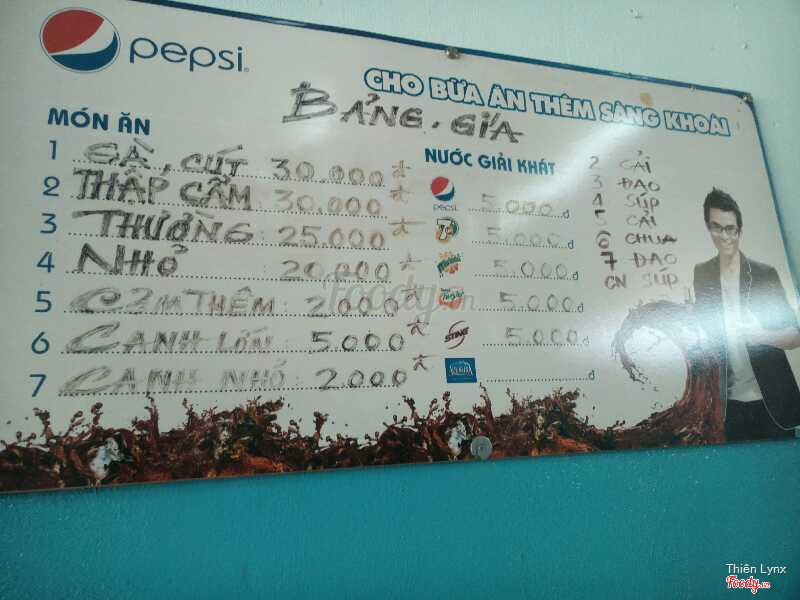 pepsi
CHO BỮA ĂN THÊM SẢNG KHOÁI
BẢNG. GIÁ
MÓN ĂN
1 GÀ, CÚT 30.000
2 THẬP CẨM 30.000
3 THƯỜNG 25.000
4 NHỎ 20.000
5 CƠM THÊM: 2000
6 CANH LỚN: 5.000
7 CANH NHỎ: 2000
NƯỚC GIẢI KHÁT
pepsi 5.000đ
7 5.000đ
5.000đ
5.000đ
STING 5.000đ
đ
2 CẢI
3 ĐẠO
4 SÚP
5 CẢI
6 CHUA
7 ĐẠO
CN SÚP
Foody.vn
Thiên Lynx
Foody.vn